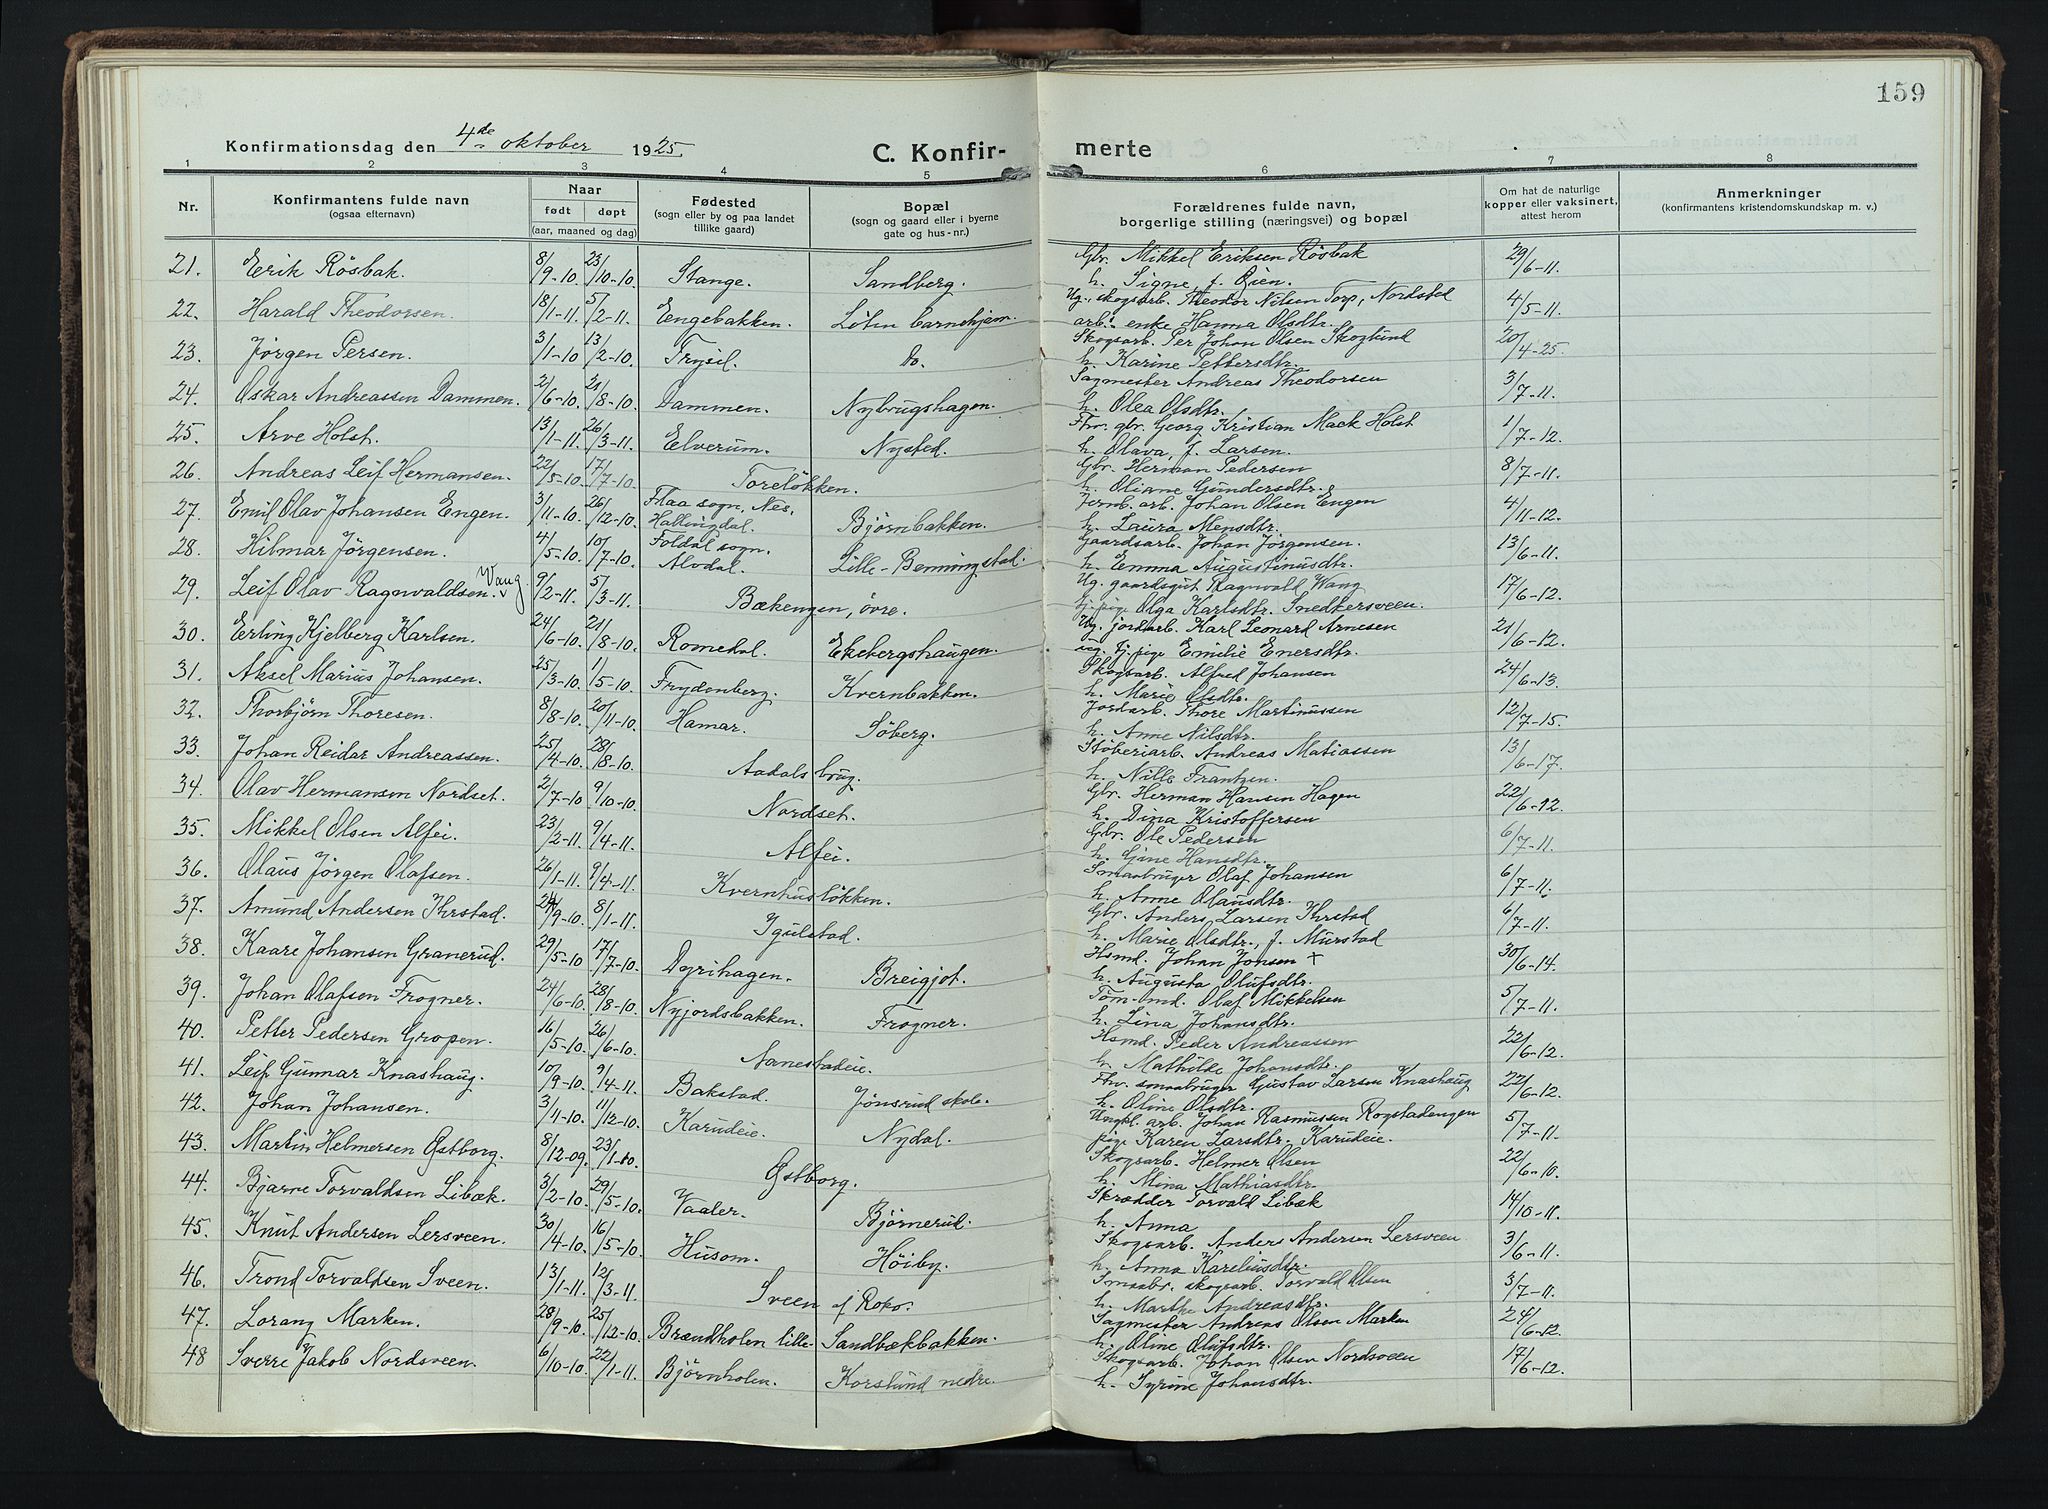 159
Konfirmationsdag den 4de oktober 1925. C. Konfir- merte
1 2 3 4 5 6 7 8
Nr. Konfirmantens fulde navn (ogsaa efternavn) Naar født døpt (aar, maaned og dag) Fødested (sogn eller by og paa landet tillike gaard) Bopæl (sogn og gaard eller i byerne gate og hus-nr.) Forældrenes fulde navn, borgerlige stilling (næringsvei) og bopæl Om hat de naturlige kopper eller vaksinert, attest herom Anmerkninger (konfirmantens kristendomskundskap m. v.)
21. Eerik Røsbak. 8/9-10. 23/10-10. Stange. Sandberg. Gbr. Mikkel Eriksen Røsbak 29/6-11.
h. Signe, f. Øien.
22. Harald Theodorsen. 18/1-11. 5/2-11. Engebakken. Løten barnehjem. Ug. skogsarb. Theodor Nilsen Torp, Nordstad 4/5-11.
arb. enke Hanna Olsdtr.
23. Jørgen Persen. 3/1-10. 13/2-10. Trysil. Do. Skogsarb. Per Johan Olsen Skoglund 20/4-25.
h. Karine Pettersdtr.
24. Oskar Andreassen Dammen. 2/6-10. 21/8-10. Dammen. Nybrugshagen. Sagmester Andreas Theodorsen 3/7-11.
h. Olea Olsdtr.
25. Arve Holst. 13/1-11. 26/3-11. Elverum. Nysted. Fhv. gbr. Georg Kristian Mack Holst 1/7-12.
h. Olava, f. Larsen.
26. Andreas Leif Hermansen. 22/5-10. 17/7-10. Toreløkken. Gbr. Herman Pedersen 8/7-11.
h. Oliane Gundersdtr.
27. Emil Olav Johansen Engen. 3/11-10. 26/12-10. Flaa sogn, Nes, Hallingdal. Bjørnbakken. Jernb. arb. Johan Olsen Engen 4/11-12.
h. Laura Mensdtr.
28. Hilmar Jørgensen. 4/5-10. 10/7-10. Foldal sogn. Alvdal. Lille-Benningstad. Gaardsarb. Johan Jørgensen. 13/6-11.
h. Emma Augustinusdtr.
29. Leif Olav Ragnvaldsen Vang. 9/2-11. 5/3-11. Bækengen, øvre. Ug. gaardsgut Ragnvald Wang 17/6-12.
tj. pige Olga Karlsdtr. Snedkersveen.
30. Erling Kjelberg Karlsen. 24/6-10. 21/8-10. Romedal. Ekebergshaugen. Ug. jordarb. Karl Leonard Arnesen 21/6-12.
ug. tj. pige Emilie Enersdtr.
31. Aksel Marius Johansen. 25/3-10. 1/5-10. Frydenberg. Kvernbakken. Skogsarb. Alfred Johansen 24/6-13.
h. Marie Olsdtr.
32. Thorbjørn Thoresen. 8/8-10. 20/11-10. Hamar. Søberg. Jordarb. Thore Martinussen 12/7-15.
h. Anne Nilsdtr.
33. Johan Reidar Andreassen. 25/4-10. 28/8-10. Aadals brug. Støberiarb. Andreas Matiassen 13/6-17.
h. Nille Frantzen.
34. Olav Hermansen Nordset. 2/7-10. 9/10-10. Nordset. Gbr. Herman Hansen Hagen 22/6-12.
h. Dina Kristoffersen
35. Mikkel Olsen Alfei. 23/2-11. 9/4-11. Alfei. Gbr. Ole Pedersen 6/7-11.
h. Gine Hansdtr.
36. Olaus Jørgen Olafsen. 26/1-11. 9/4-11. Kvernhusløkken. Smaabruger Olaf Johansen 6/7-11.
h. Anne Olausdtr.
37. Amund Andersen Ihrstad. 24/9-10. 8/1-11. Igulstad. Gbr. Anders Larsen Ihrstad 6/7-11.
h. Marie Olsdtr., f. Murstad
38. Kaare Johansen Granerud. 29/5-10 17/7-10. Dyrihagen. Breigjot. Hsmd. Johan Jonsen + 30/6-14.
h. Augusta Olufsdtr.
39. Johan Olafsen Frogner. 24/6-10. 28/8-10. Nyjordsbakken. Frogner. Tøm.md. Olaf Mikkelsen 5/7-11.
h. Lina Johansdtr.
40. Petter Pedersen Gropen. 16/5-10. 26/6-10. Aanestadeie. Hsmd. Peder Andreassen 22/6-12.
h. Mathilde Johansdtr.
41. Leif Gunnar Knashaug. 10/9-10. 9/4-11. Bakstad. Jønsrud skole. Fhv. smaabruger Gustav Larsen Knashaug 22/6-12.
h. Oline Olsdtr.
42. Johan Johansen. 3/11-10. 11/12-10. Karudeie. Nydal. Ungkl. arb. Johan Rasmussen Rogstadengen 5/7-11.
pige Karen Larsdtr. Karudeie.
43. Martin Helmersen Østborg. 8/12-09. 23/1-10. Østborg. Skogsarb. Helmer Olsen 22/6-10.
h. Mina Mathiasdtr.
44. Bjarne Torvaldsen Libæk. 3/2-10. 29/5-10. Vaaler. Bjørnerud. Skrædder Torvald Libæk 14/10-11.
h. Anna
45. Knut Andersen Lersveen. 30/4-10. 16/5-10. Husom. Høiby. Skogsarb. Anders Andersen Lersveen 3/6-11.
h. Anna Kareliusdtr.
46. Trond Torvaldsen Sveen. 13/1-11. 12/3-11. Sveen af Roko. Smaabr. skogsarb. Torvald Olsen 3/7-11.
h. Marthe Andreasdtr.
47. Lorang Marken. 28/9-10. 25/12-10. Brændholen lille. Sandbækbakken. Sagmester Andreas Olsen Marken 24/6-12.
h. Oline Olufsdtr.
48 Sverre Jakob Nordsveen. 6/10-10. 22/1-11. Bjørnholen. Korslund nedre. Skogsarb. Johan Olsen Nordsveen 17/6-12.
h. Syrine Johansdtr.